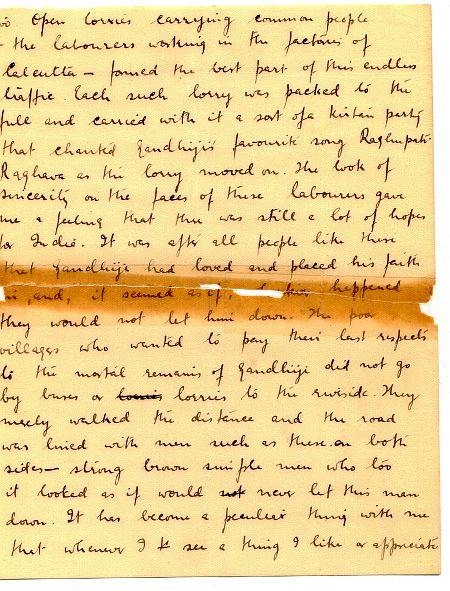 too Open lorries carrying common people
- the labourers working in the factories of
Calcutta - formed the best part of this endless
traffic. Each such lorry was packed to the
full and carried with it a sort of a kirtan party
that chanted Gandhiji's favourite song Raghupati
Raghava as the lorry moved on. The look of
sincerity on the faces of these labourers gave
me a feeling that there was still a lot of hopes
for India. It was after all people like these
that Gandhiji had loved and placed his faith
in, and, it seemed as if, happened
they would not let him down. The poor
villages who wanted to pay their last respects
to the mortal remains of Gandhiji did not go
by buses or lorries to the riverside. They
merely walked the distance and the road
was lined with men such as these on both
sides - strong brown simple men who too
it looked as if would not never let this man
down. It has become a peculiar thing with me
that whenever I see a thing I like or appreciate